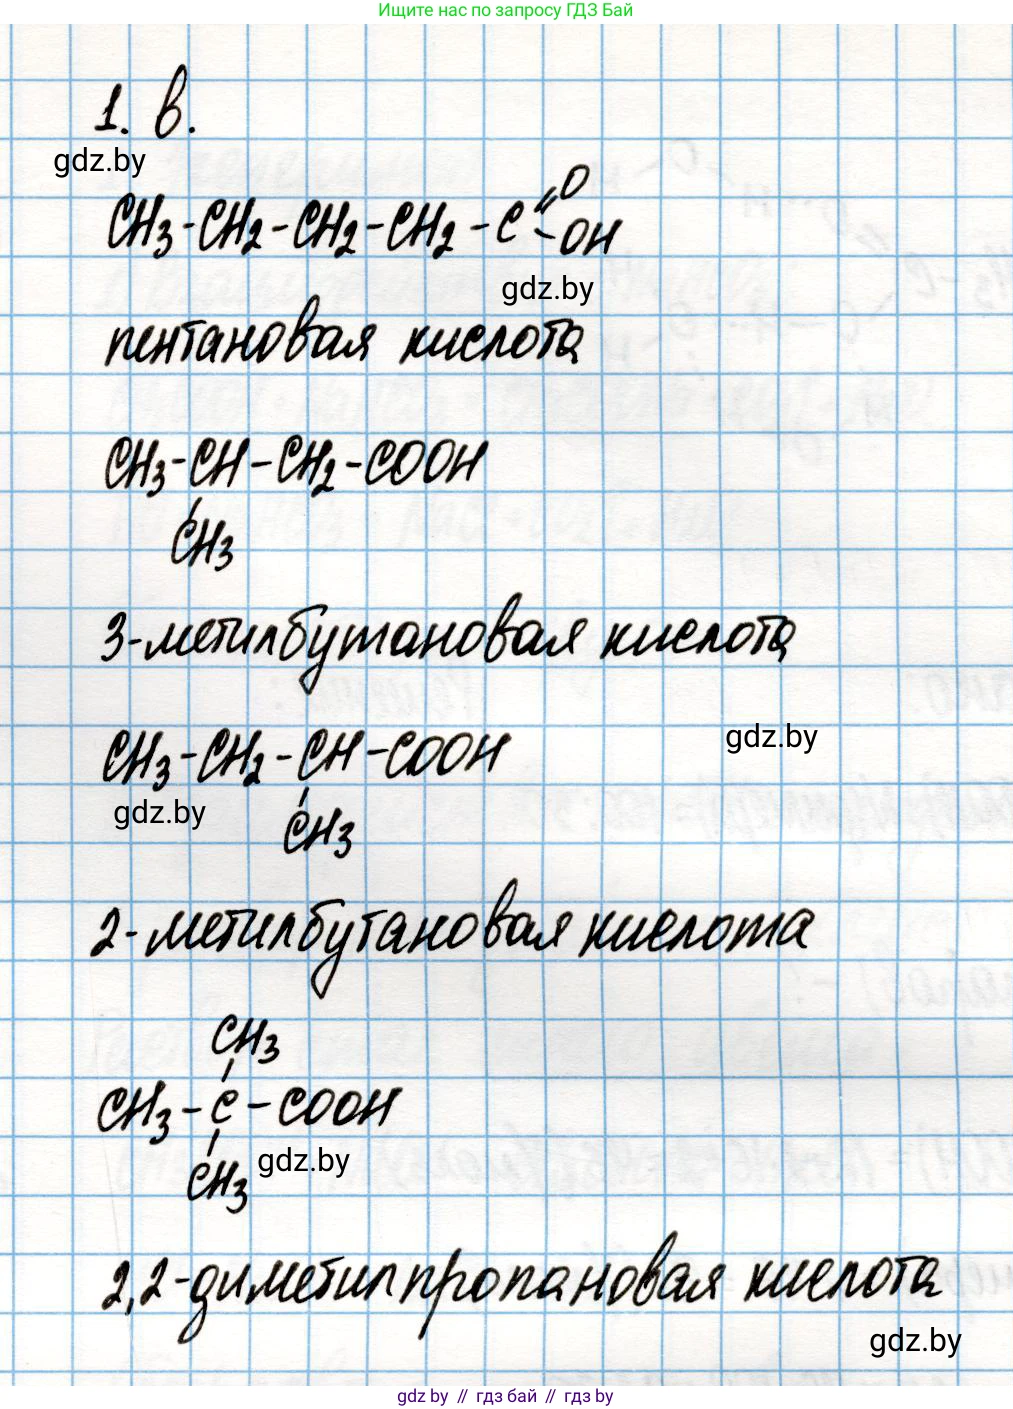 Ищите нас по запросу ГДЗ Бай
1. в.
gdz.by
O
CH3-CH2-CH2-CH2-C
OH
gdz.by
пентановая кислота
CH3-CH-CH2-COOH
CH3
3-метилбутановая кислота
gdz.by
CH3-CH2-CH-COOH
gdz.by
CH3
2-метилбутановая кислота
CH3
CH3-C-COOH
gdz.by
CH3
2,2-диметилпропановая кислота
gdz.by
gdz by // гдз бай // гдз by